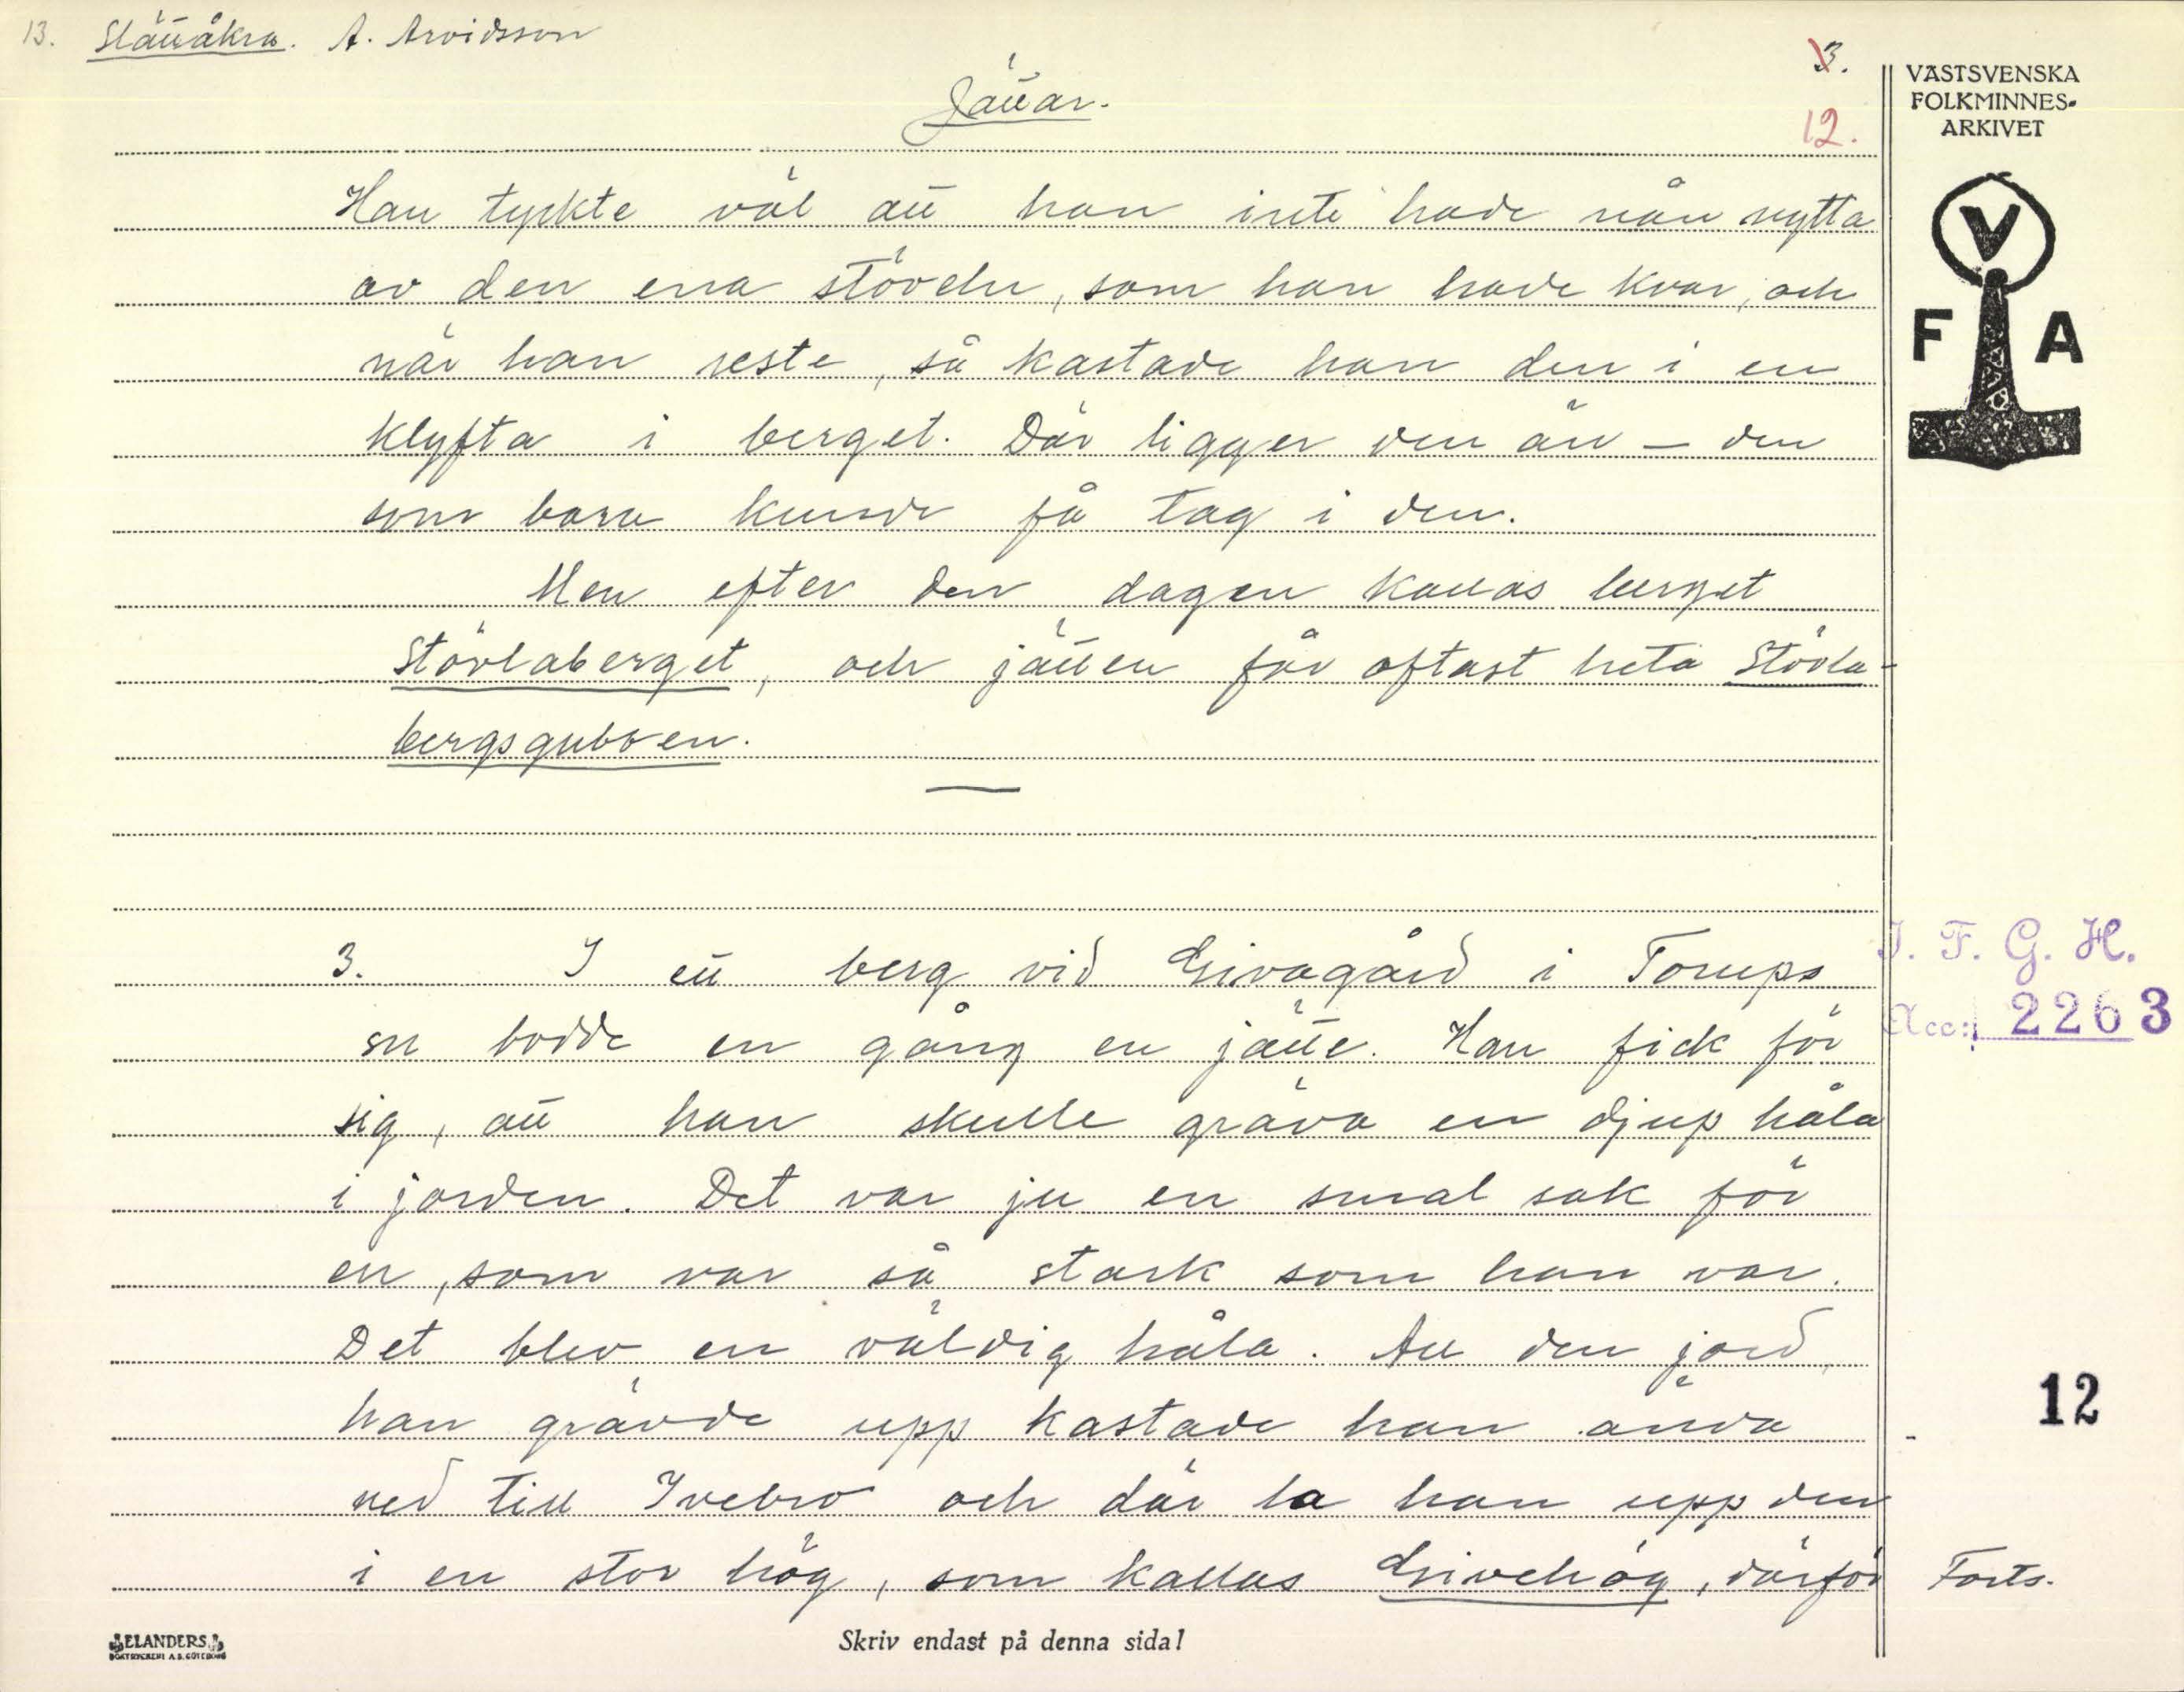 13. Slättåkra. A. Arvidsson
3.
Jättar.
12.
VÄSTSVENSKA
FOLKMINNES-
ARKIVET
V
F A
Han tyckte väl att han inte hade nån nytta
av den ena stöveln, som han hade kvar, och
när han reste, så kastade han den i en
klyfta i berget. Där ligger den än – den
som bara kunde få tag i den.
Men efter den dagen kallas berget
Stövlaberget, och jätten får oftast heta Stövla-
bergsgubben.
3. I ett berg vid Givagård i Torups
sn bodde en gång en jätte. Han fick för
sig, att han skulle gräva en djup håla
i jorden. Det var ju en smal sak för
en, som var så stark som han var.
Det blev en väldig håla. All den jord,
han grävde upp kastade han ända
ned till Ivebro och där la han upp den
i en stor hög, som kallas Givehög, därför
Forts.
I. F. G. H.
Acc: 2263
12
ELANDERS
BOKTRYCKERI A.B. GÖTEBORG
Skriv endast på denna sida!